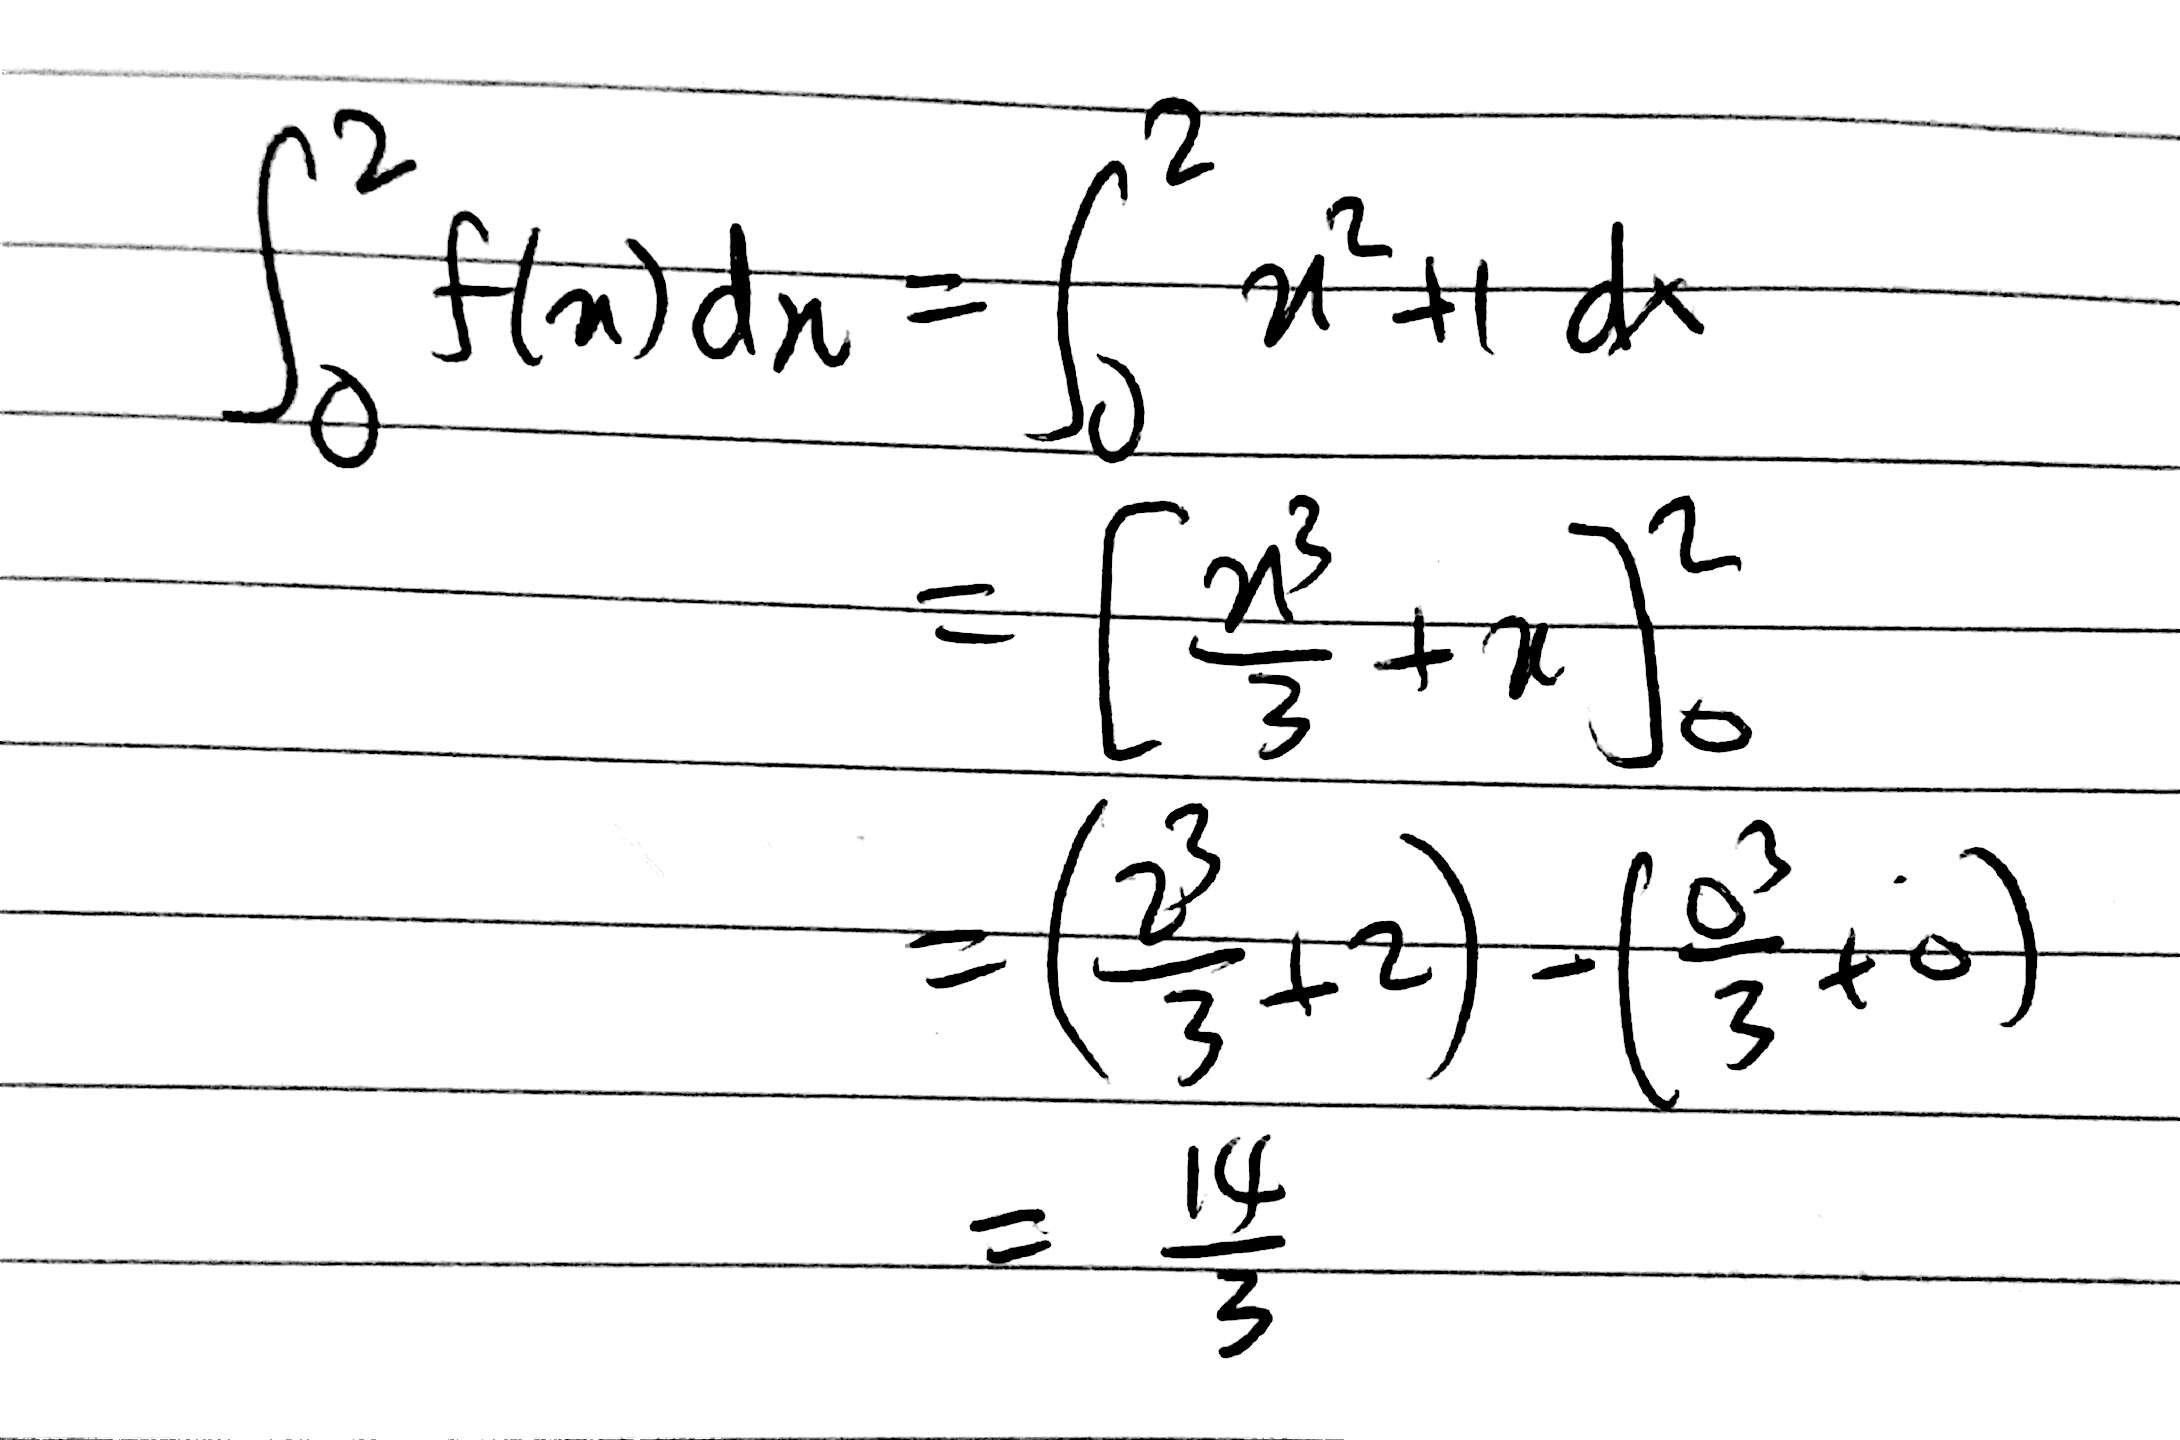 ∫₀² f(x)dx = ∫₀² x²+1 dx
= [x³/3 + x]₀²
= (2³/3 + 2) - (0³/3 + 0)
= 14/3